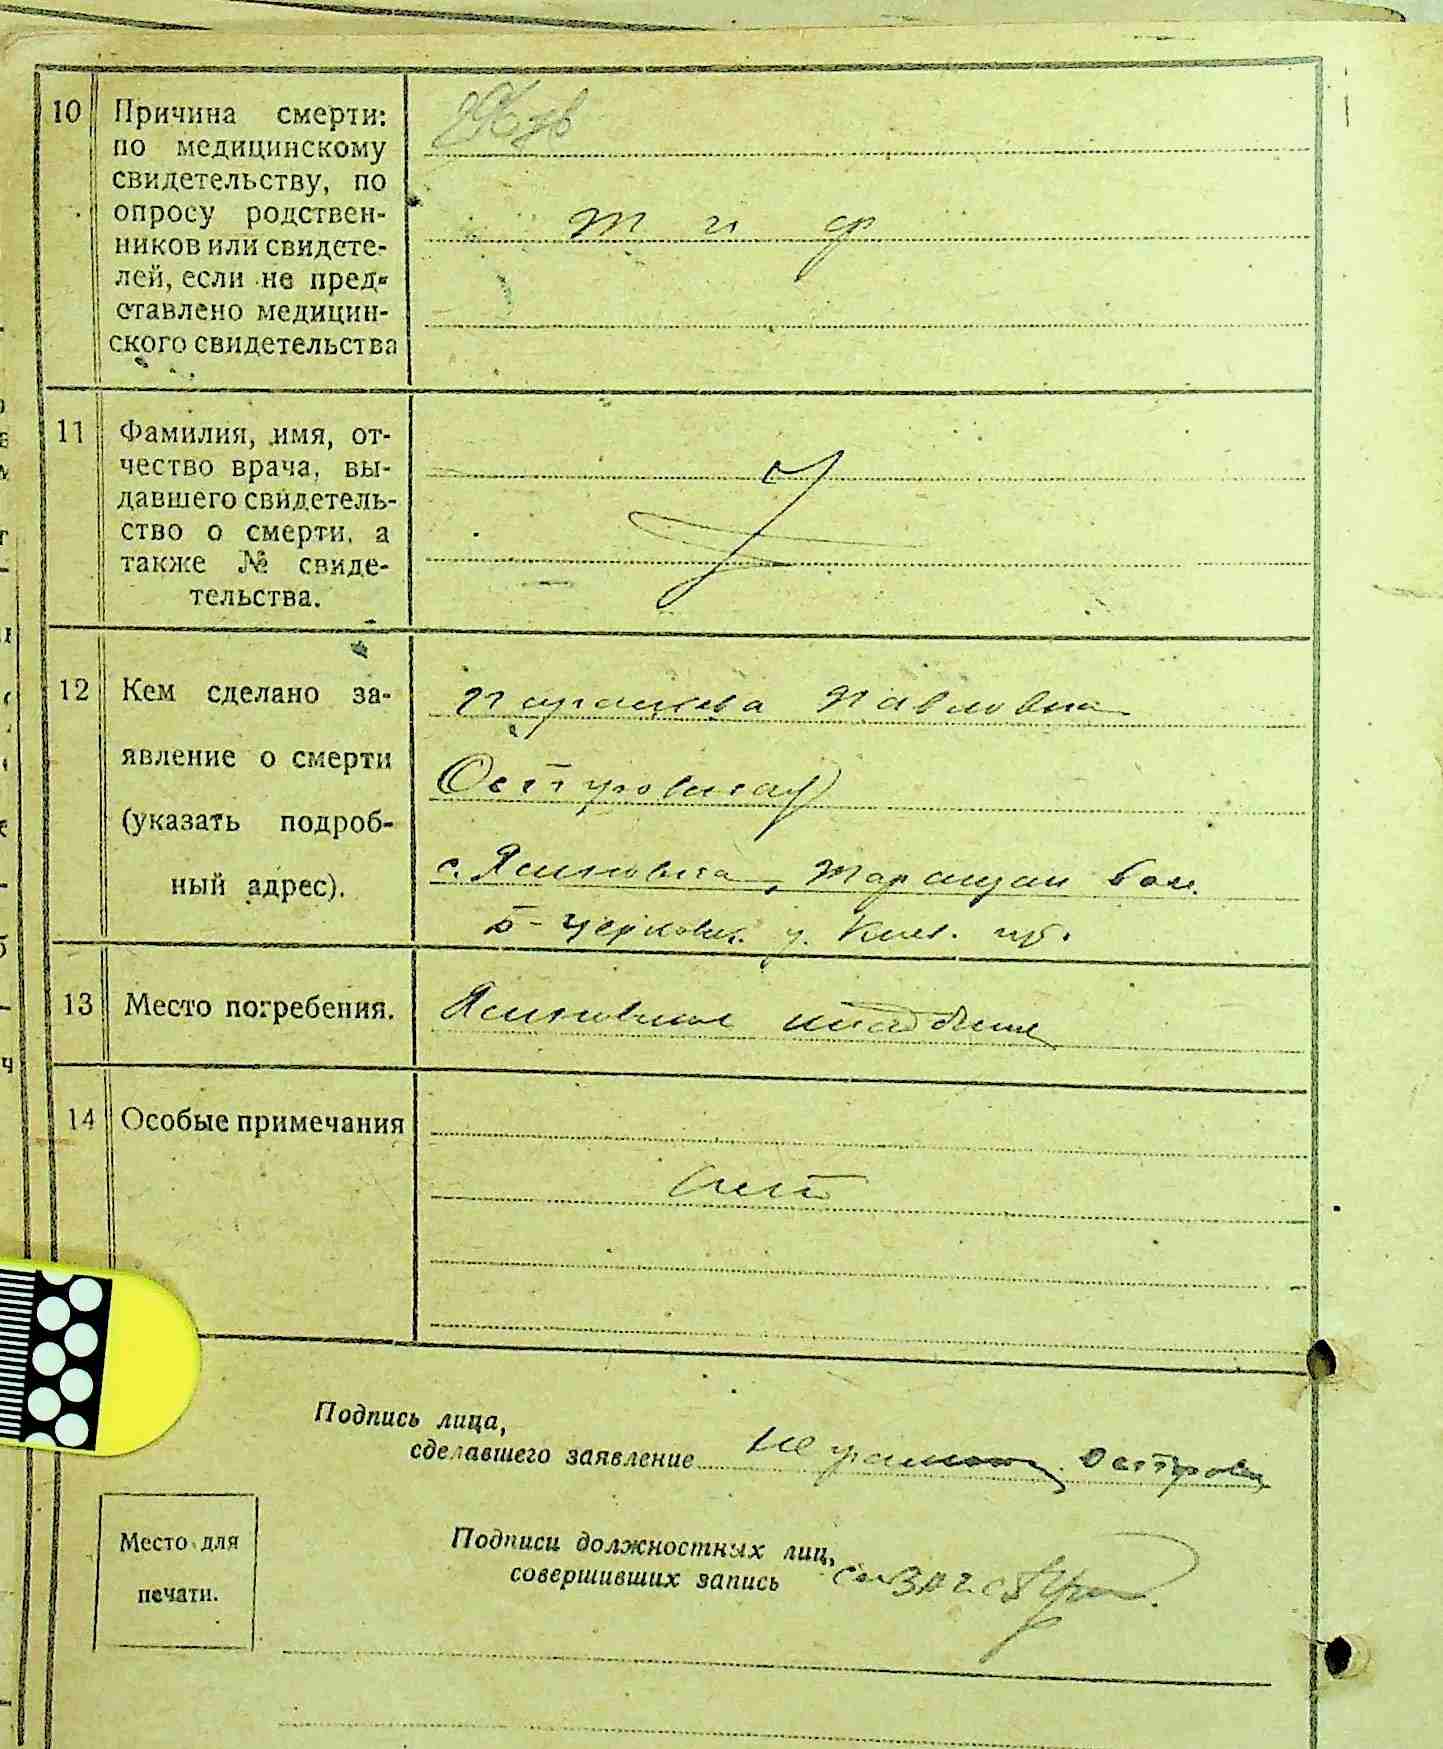 10 Причина смерти:
по медицинскому
свидетельству, по
опросу родствен-
ников или свидете-
лей, если не пред-
ставлено медицин-
ского свидетельства
тиф
11 Фамилия, имя, от-
чество врача, вы-
давшего свидетель-
ство о смерти, а
также № свиде-
тельства.
12 Кем сделано за-
явление о смерти
(указать подроб-
ный адрес).
Павловна
Островская
с. Ясиновка, Таращан вол.
Б-Церковск. у. Киев. губ.
13 Место погребения.
Ясиновское кладбище
14 Особые примечания
нет
Подпись лица,
сделавшего заявление Островск
Подписи должностных лиц,
совершивших запись
Место для
печати.